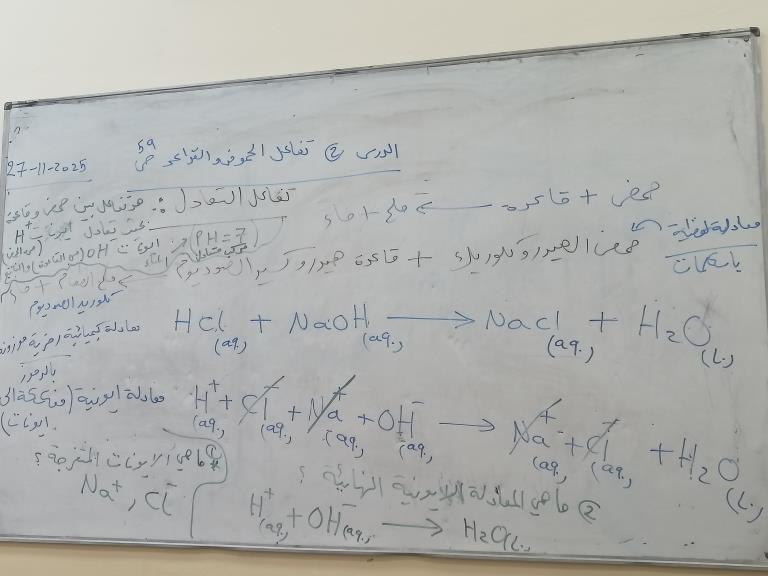 الدرس ② تفاعل الحموض والقواعد ص 59
27-11-2025
تفاعل التعادل : هو تفاعل بين حمض وقاعدة
بحيث تتعادل ايونات H⁺ (من الحمض)
ايونات OH⁻ (من القاعدة)
(PH = 7)
حمض + قاعدة ← ملح + ماء
معادلة لفظية
بالكلمات
حمض الهيدروكلوريك + قاعدة هيدروكسيد الصوديوم ← ملح الطعام + ماء
كلوريد الصوديوم
معادلة كيميائية رمزية موزونة
بالرموز
HCl (aq.) + NaOH (aq.) → NaCl (aq.) + H₂O (l.)
معادلة ايونية (مفككة الى
ايونات)
H⁺ (aq.) + Cl⁻ (aq.) + Na⁺ (aq.) + OH⁻ (aq.) → Na⁺ (aq.) + Cl⁻ (aq.) + H₂O (l.)
① ما هي الايونات المتفرجة ؟
Na⁺ , Cl⁻
② ما هي المعادلة الايونية النهائية ؟
H⁺ (aq.) + OH⁻ (aq.) → H₂O (l.)